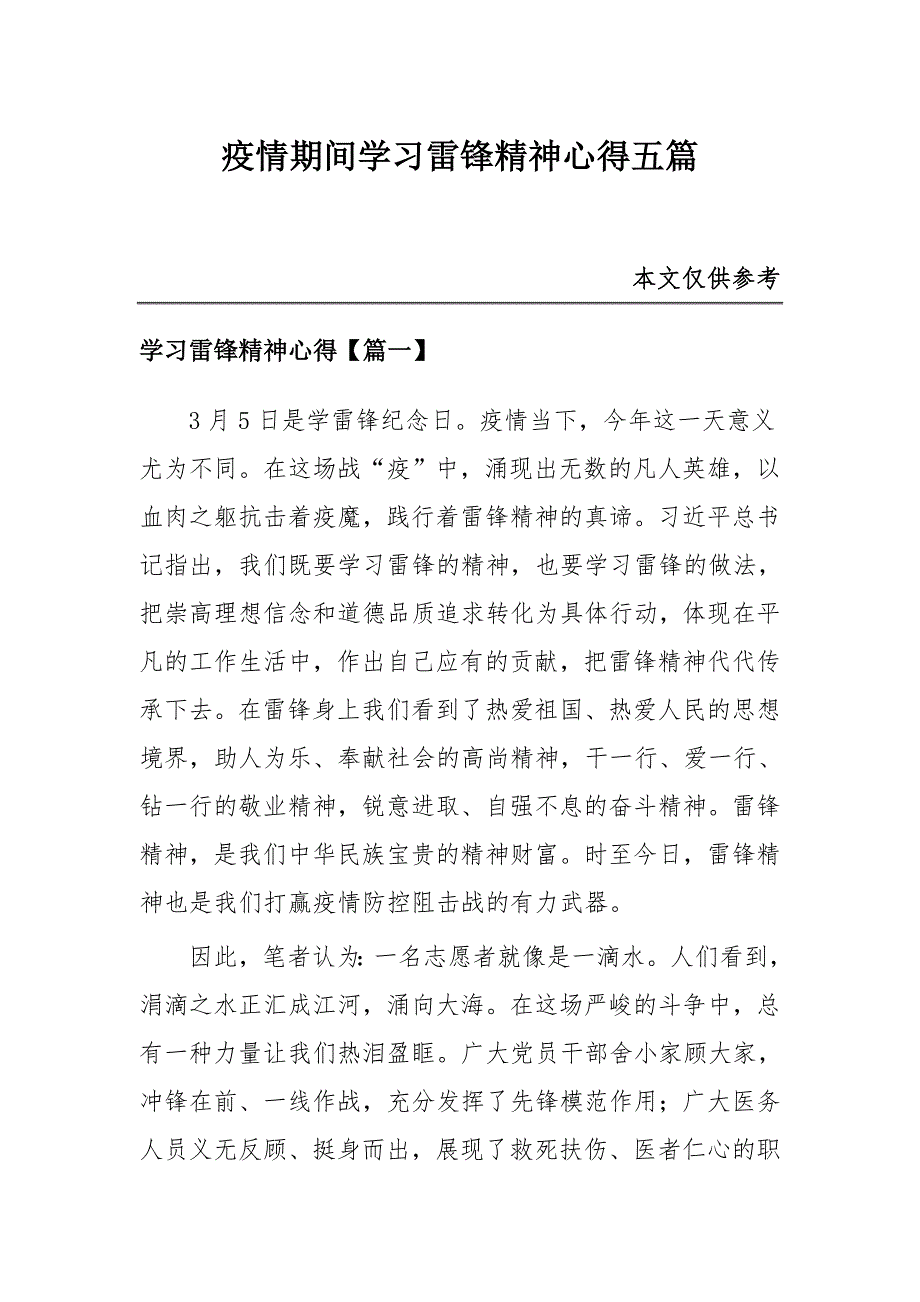 疫情期间学习雷锋精神心得五篇
本文仅供参考
学习雷锋精神心得【篇一】
3月5日是学雷锋纪念日。疫情当下，今年这一天意义
尤为不同。在这场战“疫”中，涌现出无数的凡人英雄，以
血肉之躯抗击着疫魔，践行着雷锋精神的真谛。习近平总书
记指出，我们既要学习雷锋的精神，也要学习雷锋的做法，
把崇高理想信念和道德品质追求转化为具体行动，体现在平
凡的工作生活中，作出自己应有的贡献，把雷锋精神代代传
承下去。在雷锋身上我们看到了热爱祖国、热爱人民的思想
境界，助人为乐、奉献社会的高尚精神，干一行、爱一行、
钻一行的敬业精神，锐意进取、自强不息的奋斗精神。雷锋
精神，是我们中华民族宝贵的精神财富。时至今日，雷锋精
神也是我们打赢疫情防控阻击战的有力武器。
因此，笔者认为：一名志愿者就像是一滴水。人们看到，
涓滴之水正汇成江河，涌向大海。在这场严峻的斗争中，总
有一种力量让我们热泪盈眶。广大党员干部舍小家顾大家，
冲锋在前、一线作战，充分发挥了先锋模范作用；广大医务
人员义无反顾、挺身而出，展现了救死扶伤、医者仁心的职